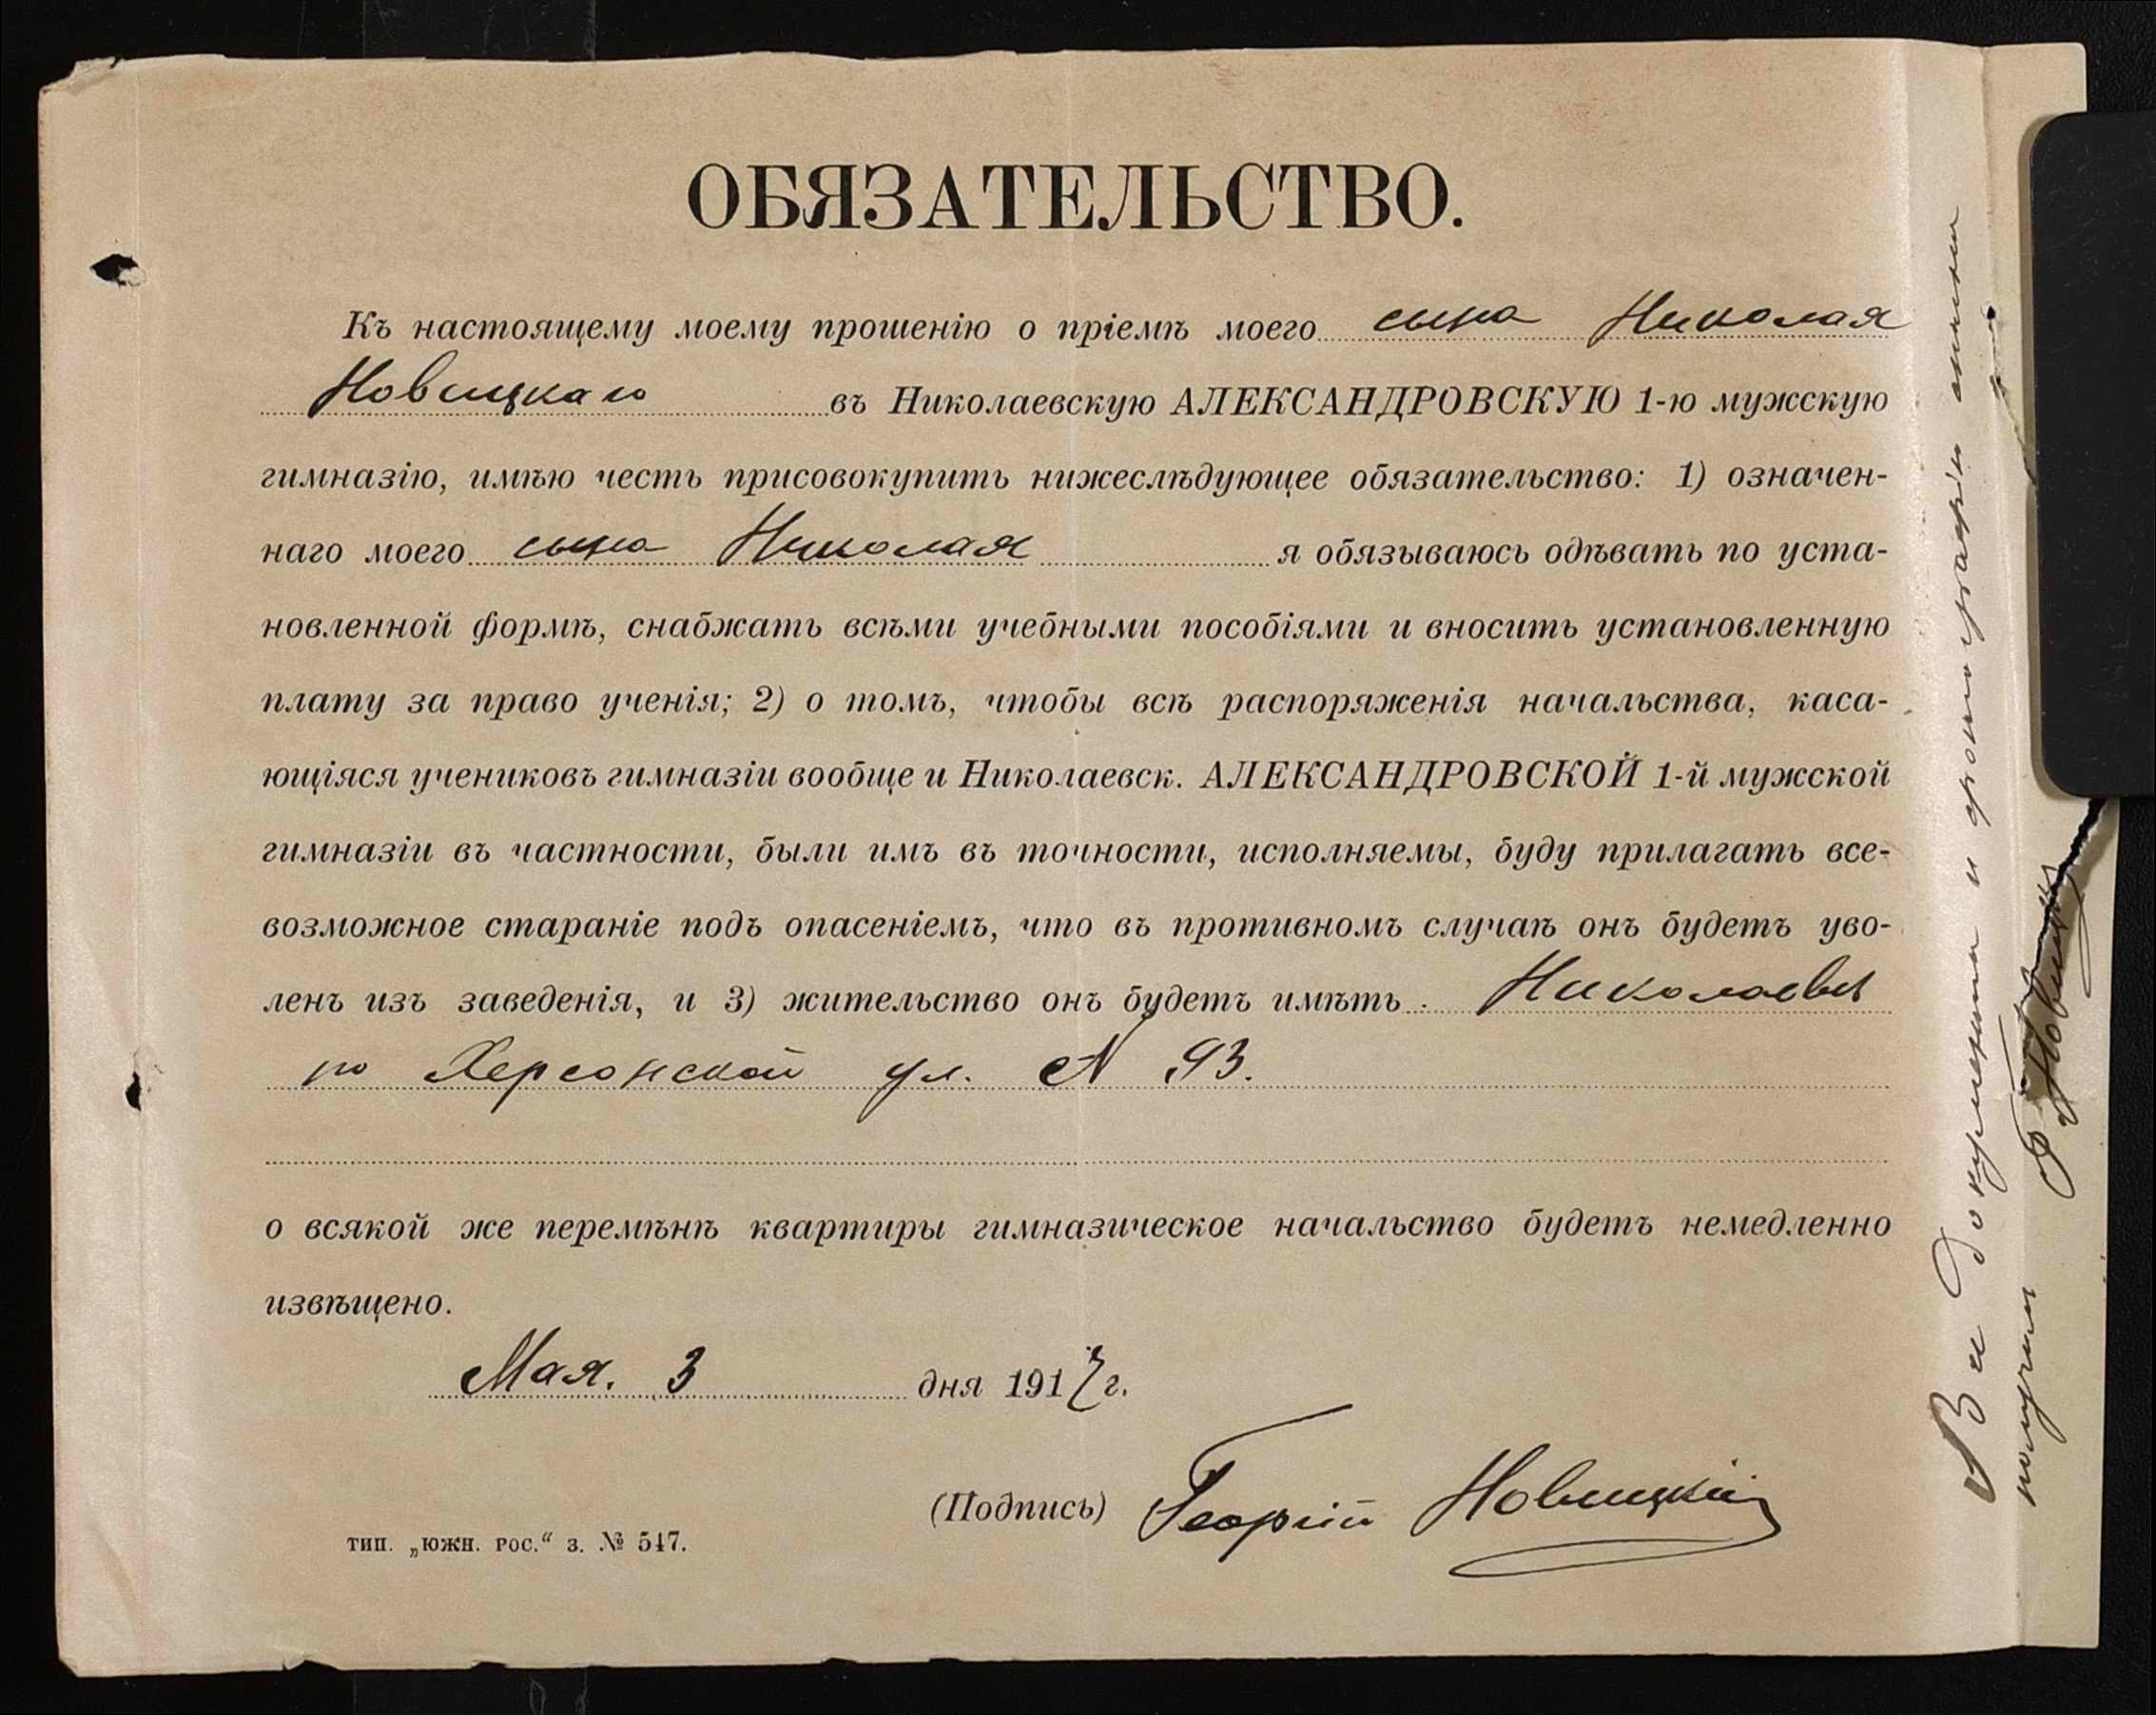 ОБЯЗАТЕЛЬСТВО.
Къ настоящему моему прошенію о пріемѣ моего сына Николая
Новицкаго въ Николаевскую АЛЕКСАНДРОВСКУЮ 1-ю мужскую
гимназію, имѣю честь присовокупить нижеслѣдующее обязательство: 1) означен-
наго моего сына Николая я обязываюсь одѣвать по уста-
новленной формѣ, снабжать всѣми учебными пособіями и вносить установленную
плату за право ученія; 2) о томъ, чтобы всѣ распоряженія начальства, каса-
ющіяся учениковъ гимназіи вообще и Николаевск. АЛЕКСАНДРОВСКОЙ 1-й мужской
гимназіи въ частности, были имъ въ точности, исполняемы, буду прилагать все-
возможное стараніе подъ опасеніемъ, что въ противномъ случаѣ онъ будетъ уво-
ленъ изъ заведенія, и 3) жительство онъ будетъ имѣть Николаевъ
по Херсонской ул. № 93.
о всякой же перемѣнѣ квартиры гимназическое начальство будетъ немедленно
извѣщено.
Мая. 3 дня 1917 г.
(Подпись) Георгій Новицкій
тип. „южн. рос.“ з. № 547.
Все документы и фотографіи
получил
Г. Новицкій